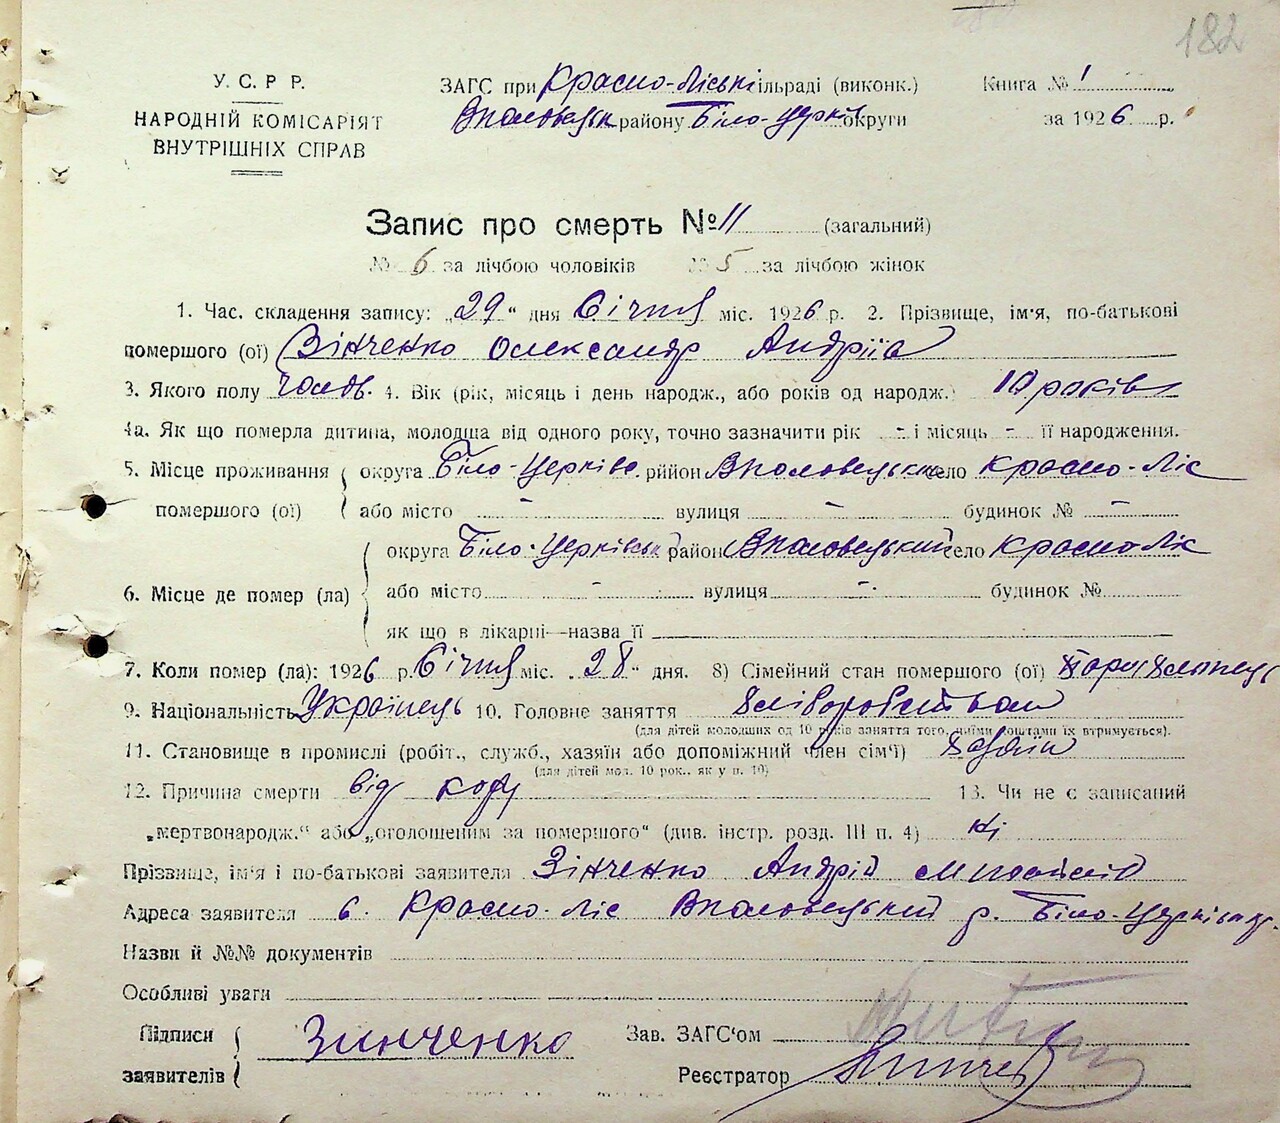 182
У. С. Р. Р.
НАРОДНІЙ КОМІСАРІЯТ
ВНУТРІШНІХ СПРАВ
ЗАГС при Красно-Ліські сільраді (виконк.)
району Біло-Церків округи
Книга № 1
за 1926 р.
Запис про смерть № 11 (загальний)
№ 6 за лічбою чоловіків № 5 за лічбою жінок
1. Час. складення запису: „29“ дня Січня міс. 1926 р. 2. Прізвище, ім'я, по-батькові
помершого (ої) Зінченко Олександр Андріїв
3. Якого полу чолов. 4. Вік (рік, місяць і день народж., або років од народж.) 10 років
4а. Як що померла дитина, молодша від одного року, точно зазначити рік - і місяць - її народження.
5. Місце проживання помершого (ої) округа Біло-Церків. район село Красно-Ліс
або місто - вулиця - будинок № -
6. Місце де помер (ла) округа Біло-Церківськ район село Красно Ліс
або місто - вулиця - будинок №
як що в лікарні—назва її
7. Коли помер (ла): 1926 р. Січня міс. „28“ дня. 8) Сімейний стан помершого (ої)
9. Національність Українець 10. Головне заняття хліборобством
(для дітей молодших од 10 років заняття того, чиїми коштами їх втримується).
11. Становище в промислі (робіт., служб., хазяїн або допоміжний член сім'ї) хазяїн
(для дітей мол. 10 рок., як у п. 10)
12. Причина смерти від кору 13. Чи не є записаний
„мертвонародж.“ або „оголошеним за помершого“ (див. інстр. розд. III п. 4) ні
Прізвище, ім'я і по-батькові заявителя Зінченко Андрій
Адреса заявителя с. Красно-Ліс р. Біло-Церків
Назви й №№ документів
Особливі уваги
Підписи заявителів Зинченко
Зав. ЗАГС'ом
Реєстратор